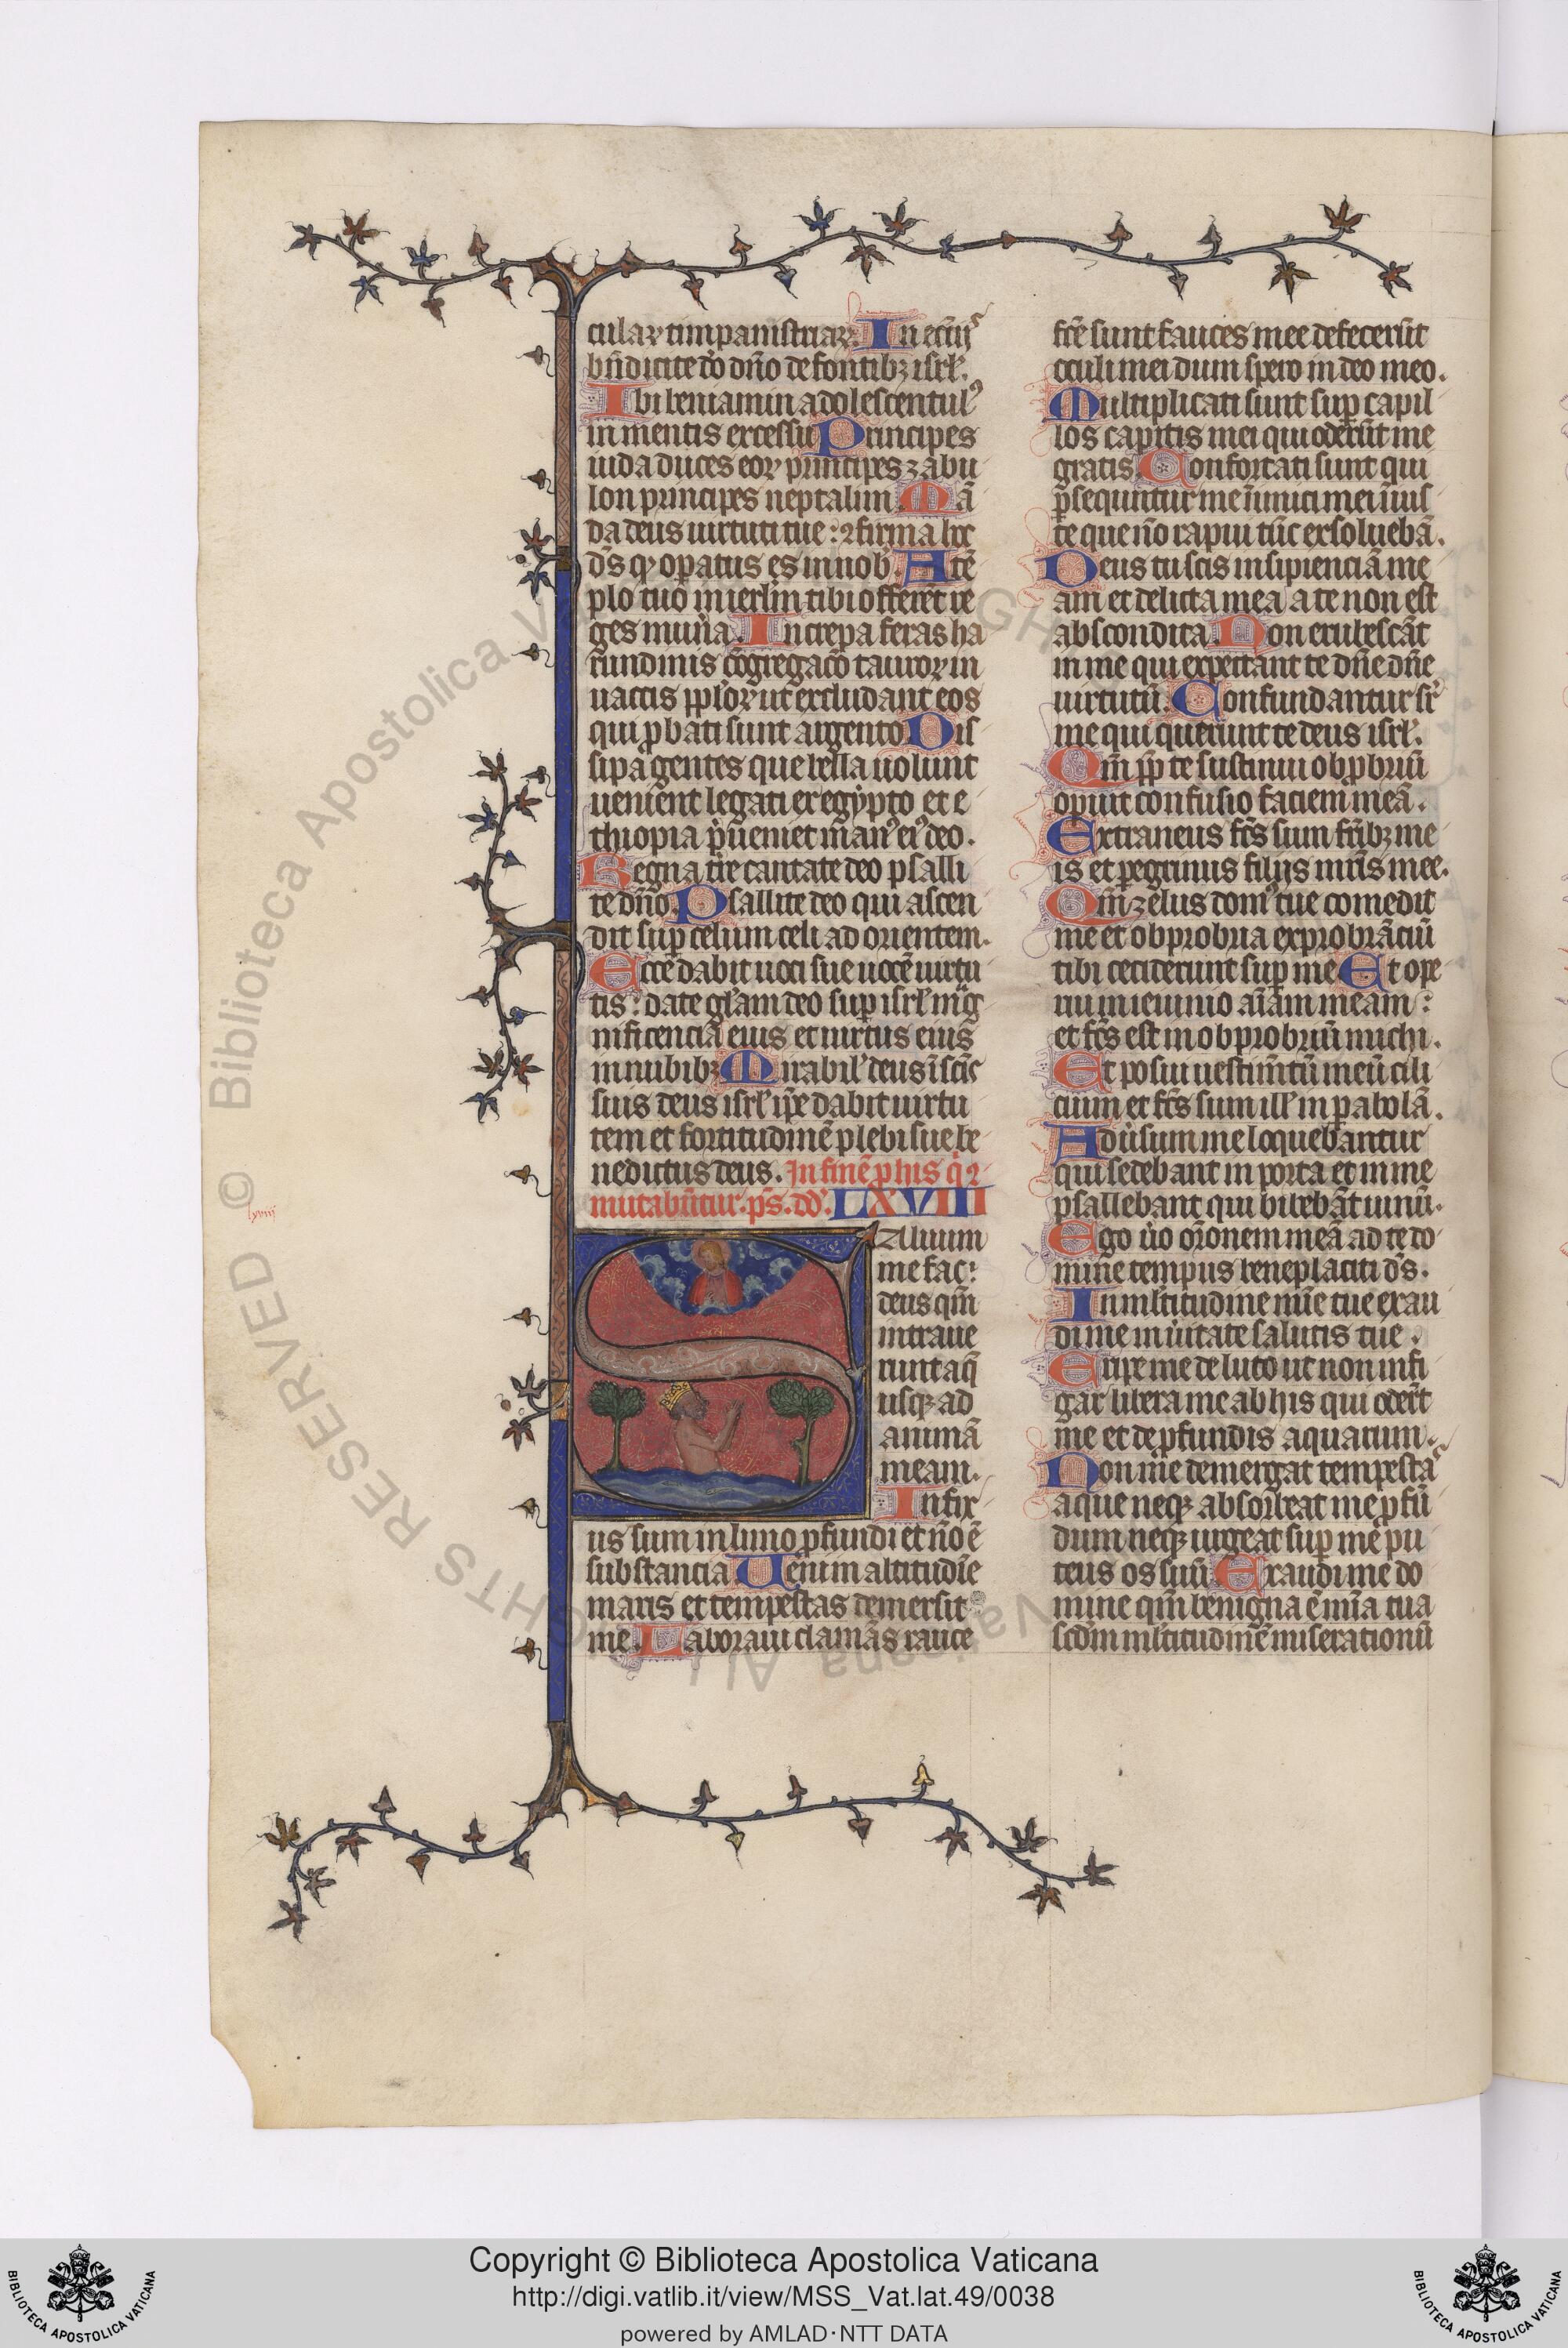 culaꝝ timpanistriaꝝ. In eccĩijs
bñdicite do dño de fontibꝫ isrl̃.
Ibi beniamin adolescentulꝰ
in mentis excessu Principes
iuda duces eoꝝ principes zabu
lon principes neptalim. Mã
da deus uirtuti tue: ⁊firma hoc
ds̃ qͥ opatus es in nob. A tẽ
plo tuo in ierl̃m tibi offerẽt re
ges muña. Increpa feras ha
rundinis cõgregac̃o tauroꝝ in
uaccis pploꝝ ut excludant eos
qui ꝓbati sunt argento Dis
sipa gentes que bella uolunt
uenient legati ex egypto et e
thiopia pͥueniet mãnꝰ eiꝰ deo.
Regna tr̃e cantate deo psalli
te dño. Psallite deo qui ascen
dit suꝑ celum celi ad orientem.
Ecce dabit uoci sue uocẽ uirtu
tis: date gl̃am deo suꝑ isrl̃ mãg
nificencia eius et uirtus eius
in nubibꝫ Mirabil' deus ĩ scĩs
suis deus isrl̃ ip̃e dabit uirtu
tem et fortitudinẽ plebi sue be
nedictus deus. In finẽ ꝓ his qͥ ⁊
mutabũtur. ps̃. dd̃. LXVIII
lxviij
Aluum
me fac:
deus qm̃
intraue
runt aq̃
usqꝫ ad
animã
meam.
Infix
us sum in limo ꝓfundi et nõ ẽ
substancia Ueni in altitudĩe
maris et tempestas demersit
me. Laboraui clamãs rauce
fcẽ sunt fauces mee defecerũt
oculi mei dum spero in deo meo.
Multiplicati sunt suꝑ capil
los capitis mei qui oderũt me
gratis. Confortati sunt qui
ꝑsequntur me ĩnimici mei ĩnius
te que nõ rapui tũc exsoluebã.
Deus tu scis insipienciã me
am et delicta mea a te non est
abscondita. Non erubescãt
in me qui expectant te dñe dñe
uirtutũ. Confundantur sr̃
me qui querunt te deus isrl̃.
Qm̃ ꝓp te sustinui obꝓbriũ
opuit confusio faciem meã.
Extraneus fc̃s sum fr̃ibꝫ me
is et pegrinus filijs mr̃is mee.
Qm̃ zelus domꝰ tue comedit
me et obprobria exprobrãciũ
tibi ceciderunt suꝑ me Et ope
rui in ieiunio aĩam meam:
et fc̃s est in obprobriũ michi.
Et posui uestim̃tũ meũ cili
cium et fc̃s sum ill' in ꝑabolã.
Aduͥsum me loquebantur
qui sedebant in porta et in me
psallebant qui bibebãt uinũ.
Ego uͦo or̃onem meã ad te do
mine tempus beneplaciti ds̃.
In ml̃titudine mĩe tue exau
di me in ũitate salutis tue.
Eripe me de luto ut non infi
gar libera me ab his qui oder̃t
me et de ꝓfundis aquarum.
Non me demergat tempestas
aque neqꝫ absorbeat me ꝓfũ
dum neqꝫ urgeat suꝑ me pu
teus os suũ. Exaudi me do
mine qm̃ benigna ẽ mĩa tua
scd̃m ml̃titudinẽ miserationũ
© Biblioteca Apostolica Vaticana ALL RIGHTS RESERVED
Copyright © Biblioteca Apostolica Vaticana
http://digi.vatlib.it/view/MSS_Vat.lat.49/0038
powered by AMLAD·NTT DATA
BIBLIOTECA APOSTOLICA VATICANA
BIBLIOTECA APOSTOLICA VATICANA